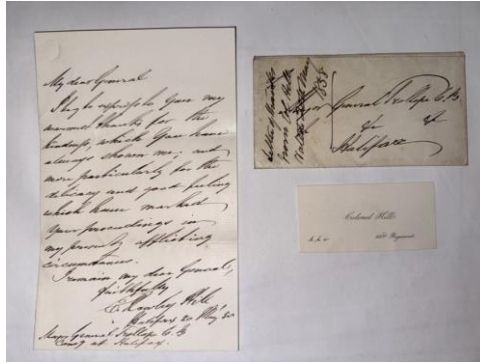 My dear General
I beg to express you my
warmest thanks for the
kindness, which you have
always shown me, and
more particularly for the
delicacy and good feeling
which have marked
your proceedings in
my present afflicting
circumstances.
I remain my dear General,
faithfully
Rowley Hill
Halifax 20
Major General Trollope C.B.
Comg at Halifax.
General Trollope C.B.
Halifax
from Col Hill
Colonel Hill
Regiment